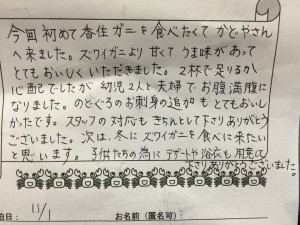 今回初めて香住ガニを食べたくてかどやさん
へ来ました。ズワイガニより甘くてうま味があって
とてもおいしくいただきました。2杯で足りるか
心配でしたが幼児2人と夫婦でお腹満腹に
なりました。のどぐろのお刺身の追加もとてもおいし
かったです。スタッフの対応もきちんとして下さりありがとう
ございました。次は、冬にズワイガニを食べに来たい
と思います。子供たちの為にデザートや浴衣も用意して
下さりありがとうございました。
泊日: 11/1
お名前(匿名可):